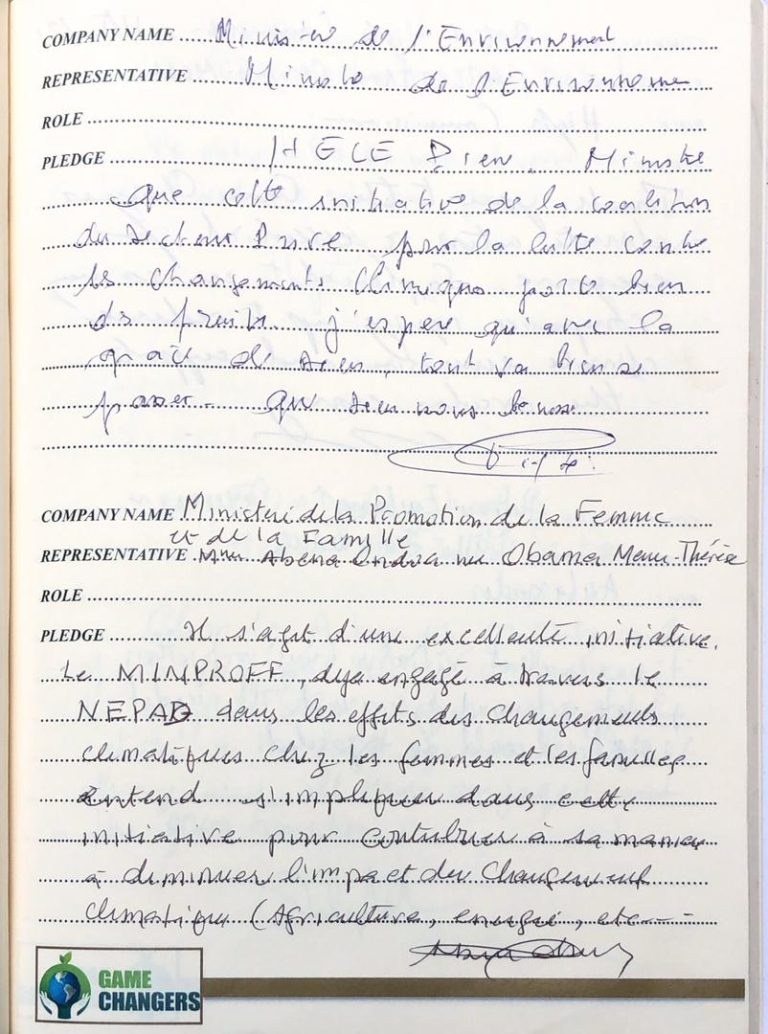 COMPANY NAME Ministre de l'Environnement
REPRESENTATIVE Ministre de l'Environneme
ROLE
PLEDGE HELE Pierre Ministre
que cette initiative de la coalition
du secteur Privé pour la lutte contre
les changements Climatiques porte bien
des fruits. j'espère qu'avec la
grâce de Dieu, tout va bien se
passer. que Dieu nous benisse
COMPANY NAME Ministère de la Promotion de la Femme
et de la Famille
REPRESENTATIVE Mme Abena Ondoa née Obama Marie-Thérèse
ROLE
PLEDGE Il s'agit d'une excellente initiative.
Le MINPROFF, deja engagé à travers le
NEPAD dans les effets des Changements
climatiques chez les femmes et les familles
entend s'impliquer dans cette
initiative pour contribuer à sa manière
à diminuer l'impact du Changement
Climatique (Agriculture, energie, etc---
GAME
CHANGERS